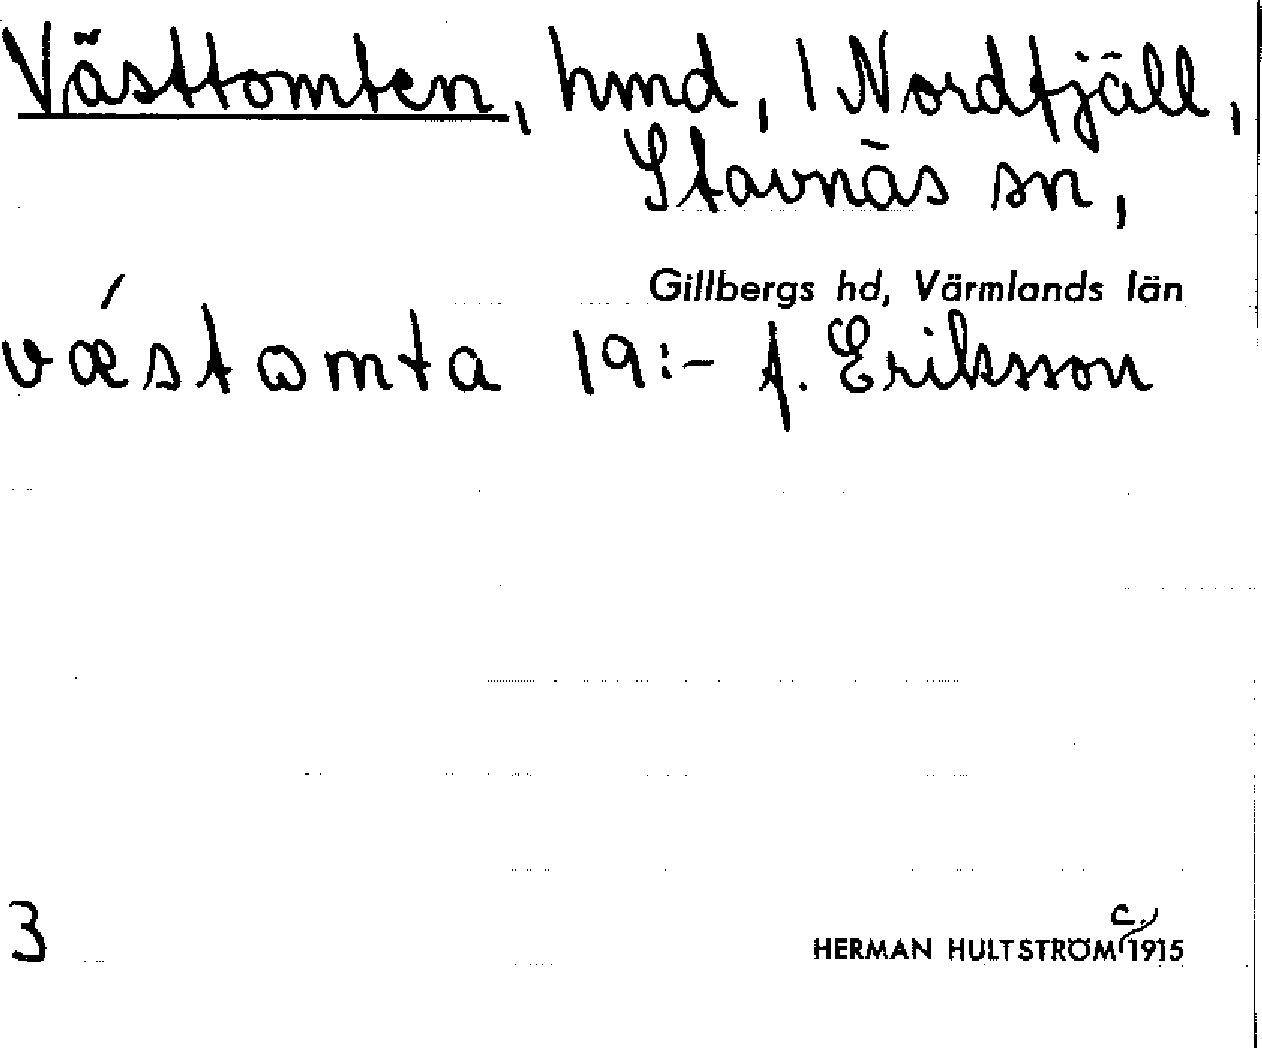 Västtomten, hmd, 1 Nordfjäll,
Stavnäs sn,
Gillbergs hd, Värmlands län
vǽstωmta 19:- f. Eriksson
3
HERMAN HULTSTRÖM c. 1915